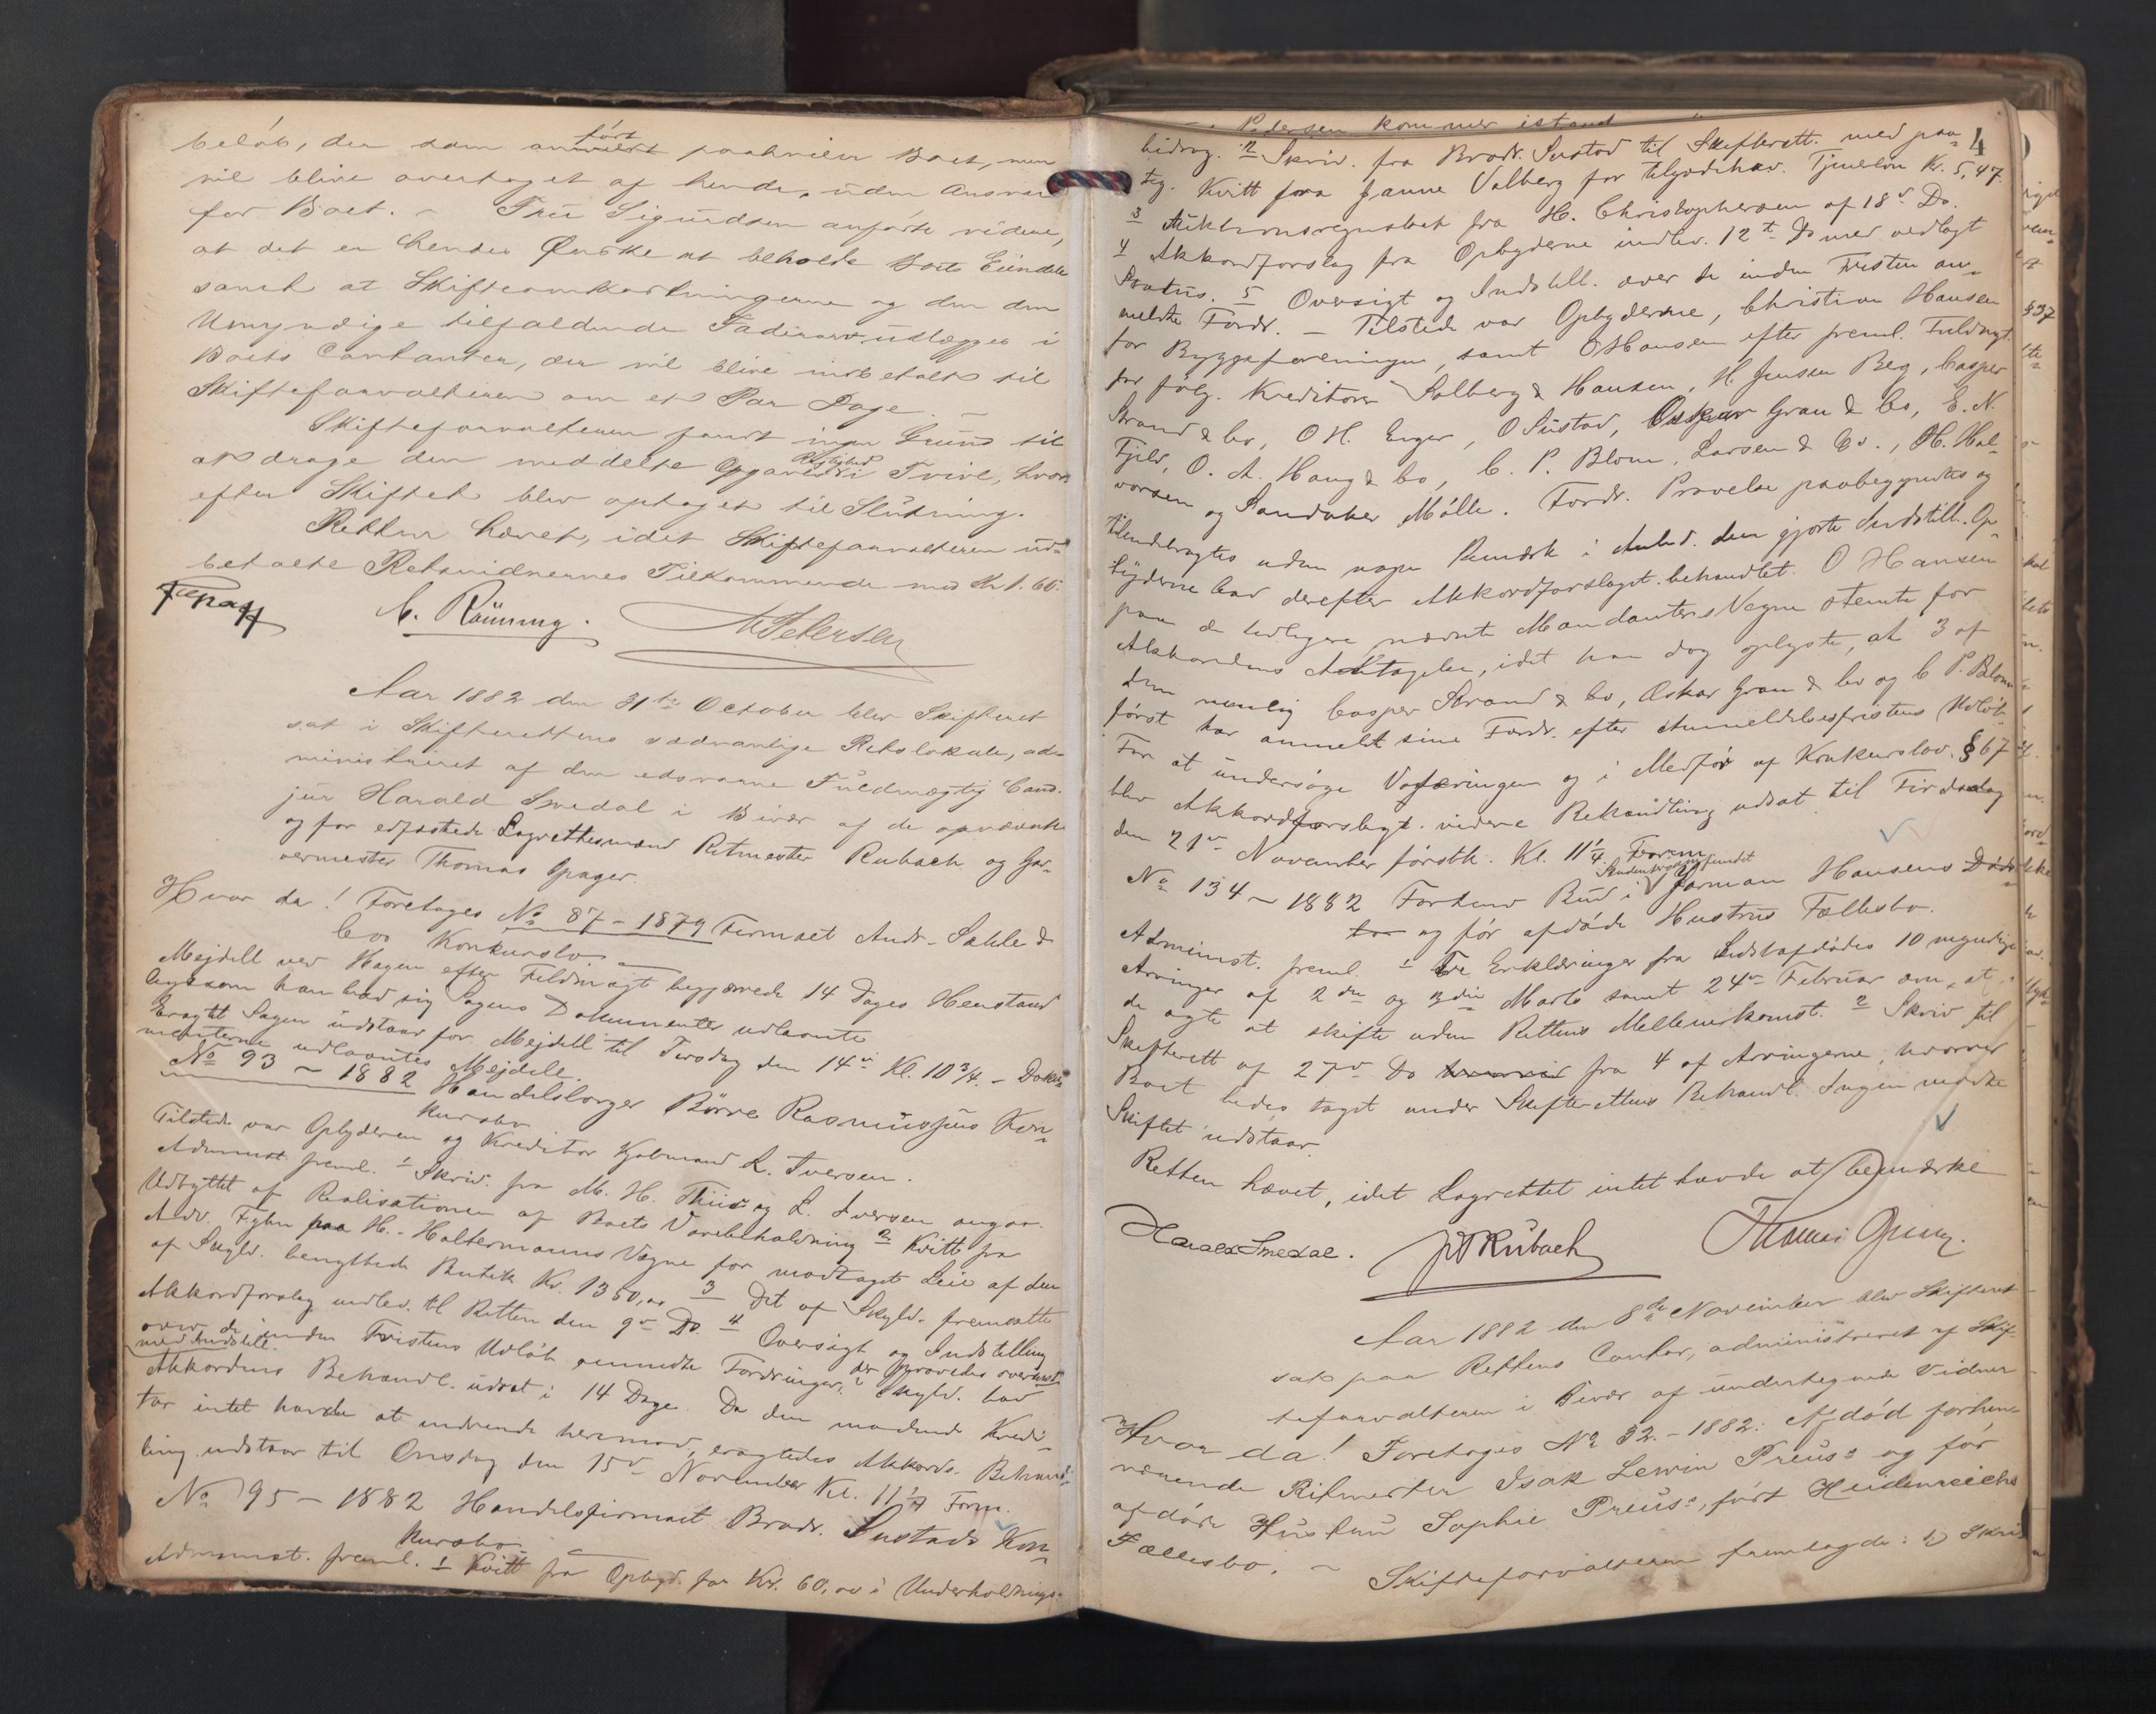 beløb, der som anført paahviler Boet, nu
vil blive overtaget af hende, uden Ansvar
for Boet. – Frue Sigurdsen anførte videre,
at det er hendes Ønske at beholde Boets Eiendele
samt at Skifteomkostningerne og den den
Umyndige tilfaldende Fædrenearv udlægges i
Boets Contanter, der vil blive indbetalt til
Skifteforvalteren om et Par Dage. –
Skifteforvalteren fandt ingen Grund til
at drage den meddelte Opgaves Rigtighed i Tvivl, hvor-
efter Skiftet blev optaget til Slutning.
Retten hævet, idet Skifteforvalteren ud-
betalte Retsvidnernes Tilkommende med Kr 1.60.
C. Rønning. A Petersen
Aar 1882 den 31te October blev Skifteret
sat i Skifterettens sædvanlige Retslokale, ad-
ministreret af den edsvorne Fuldmægtig Cand.
jur Harald Smedal i Bivær af de opnævnte
og for edfæstede Lagrettesmænd Ritmester Rubach og Gar-
vermester Thomas Opager.
Hvor da! Foretoges No 87 – 1879 Firmaet Andr. Sæhle &
Cos Konkursbo. –
Mejdell ved Hagen efter Fuldmagt begjærede 14 Dages Henstand
ligesom han bad sig Sagens Dokumenter udlaante
Eragtet Sagen udstaar for Mejdell til Tirsdag den 14de Kl. 10 3/4. – Doku-
menterne udlaantes Mejdell.
No 93 – 1882 Handelsborger Børre Rasmussens Kon-
kursbo
Tilstede var Opbyderen og Kreditor Kjøbmand L. Iversen.
Administ. freml. 1 Skriv. fra M. H. Thiis og L. Iversen angaa.
Udbyttet af Realisationen af Boets Varebeholdning 2 Kvitt fra
Adv. Fyhn paa H. Haltermanns Vegne for modtaget Leie af den
af Skyld. benyttede Butik Kr. 1350,00 3 Det af Skyld. fremsatte
Akkordforslag indlev. til Retten den 9de Do. 4 Oversigt og Indstilling
over de inden Fristens Udløb anmeldte Fordringer, der prøvedes overenst.
med Indstill. Skyld. bad
Akkordens Behandl. udsat i 14 Dage. Da den mødende Kredi-
tor intet havde at indvende herimod, eragtedes Akkords. Behand-
ling udstaar til Onsdag den 15de November Kl. 11 1/4 Form.
No 95 – 1882 Handelsfirmaet Brødr. Sustads Kon-
kursbo –
Administ. freml. 1 Kvitt fra Opbyd. for Kr. 60,00 i Underholdnings-
Pedersen kommer istand
4
bidrag. 2 Skriv. fra Brødr. Sustad til Skifterett. med paa-
teg. Kvitt fra Janne Volberg for tilgodehav. Tjenerløn Kr. 5,47.
3 Auktionsregnskab fra H. Christophersen af 18de Do.
4 Akkordforslag fra Opbyderne indlev. 12te Do med vedlagt
Status. 5 Oversigt og Indstill. over de inden Fristen an-
meldte Fordr. – Tilstede var Opbyderne, Christian Hansen
for Byggeforeningen, samt O Hansen efter freml. Fuldmgt.
for følg. Kreditorer Solberg & Hansen, H. Jensen Beg, Casper
Strand & Co, O H. Enger, O Sustad, Oskar Gran & Co, E. N.
Fjeld, O. A. Haug & Co, C. P. Blom, Larsen & Co., H. Hal-
vorsen og Sandaker Mølle. Fordr. Prøvelse paabegyndtes og
tilendebragtes uden nogen Bemærk i Anled. den gjorte Indstill. Op-
byderne bad derefter Akkordforslaget behandlet. O Hansen
paa de tidligere nævnte Mandanters Vegne stemte for
Akkordens Antagelse, idet han dog oplyste, at 3 af
dem nemlig Casper Strand & Co, Oskar Gran & Co og C P. Blom
først har anmeldt sine Fordr. efter Anmeldelsesfristens Udløb.
For at undersøge Voteringen og i Medfør af Konkurslov. § 67
blev Akkordforslagt. videre Behandling udsat til Tirsdag
den 21de November førstk. Kl. 11 1/4. Form
No 134 – 1882 Forhenv Bud i Studentersamfundet Herman Hansens Døds-
bo og før afdøde Hustrus Fællesbo.
Administ. freml. 1 Tre Erklæringer fra Sidstafdødes 10 myndige
Arvinger af 2den og 3die Marts samt 24de Februar om, at
de agte at skifte uden Rettens Mellemkomst. 2 Skriv til
Skifterett af 27de Do fra 4 af Arvingerne, hvorved
Boet bedes taget under Skifterettens Behandl. Ingen mødte
Skiftet udstaar.
Retten hævet, idet Lagrettet intet havde at bemærke
Harald Smedal. Rubach Thomas Opager.
Aar 1882 den 8de November blev Skifteret
sat paa Rettens Contor, administreret af Skif-
teforvalteren i Bivær af undertegnede Vidner
Hvor da! Foretoges No 32. – 1882: Afdød forhen-
værende Ritmester Isak Lewin Preuss og før
afdøde Hustru Sophie Preuss, født Heidenreichs
Fællesbo. – Skifteforvalteren fremlagde: 1) Skri-